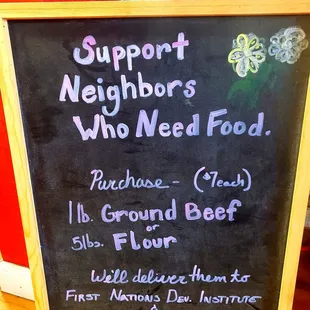 Support
Neighbors
Who Need Food.
Purchase - ($7 each)
1 lb. Ground Beef
or
5 lbs. Flour
We'll deliver them to
First Nations Dev. Institute